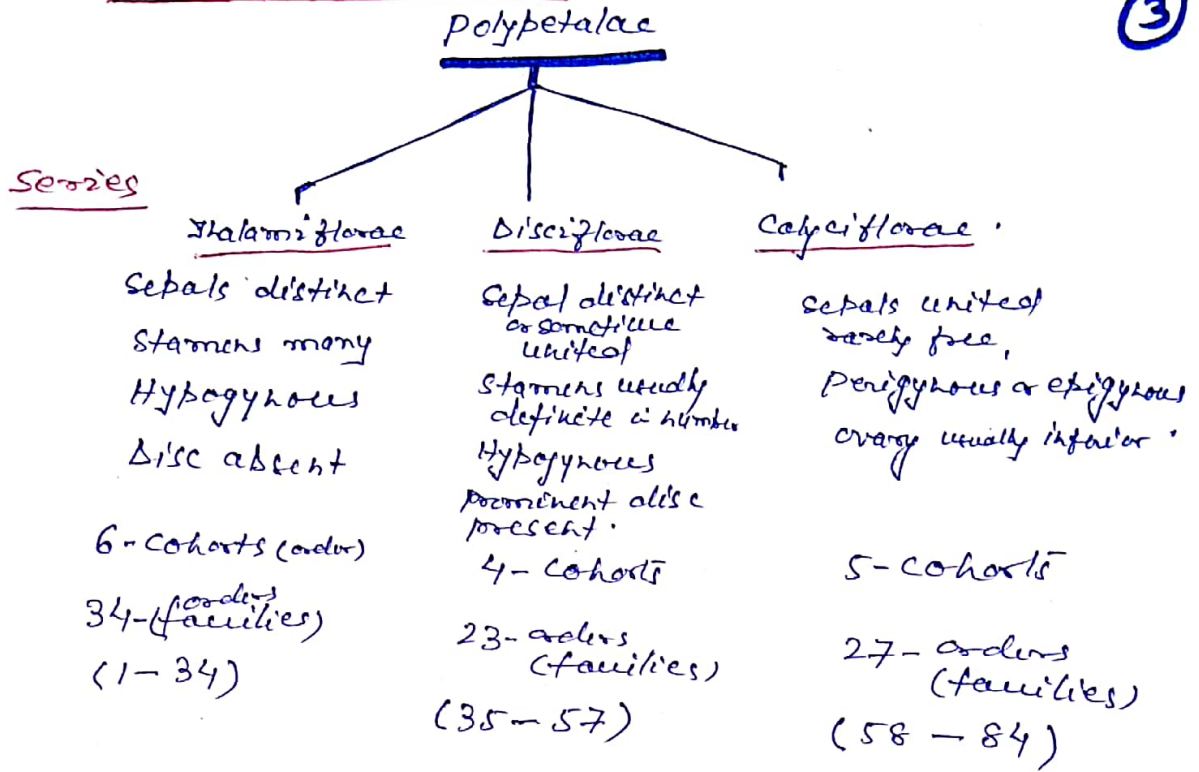 3
Polypetalae
Series
Thalamiflorae
Sepals distinct
Stamens many
Hypogynous
Disc absent
6-Cohorts (order)
34-orders
(families)
(1-34)
Disciflorae
Sepal distinct
or sometime
united
Stamens usually
definite in number
Hypogynous
prominent disc
present.
4-Cohorts
23-orders
(families)
(35-57)
Calyciflorae.
Sepals united
rarely free,
Perigynous or epigynous
ovary usually inferior.
5-cohorts
27-orders
(families)
(58-84)